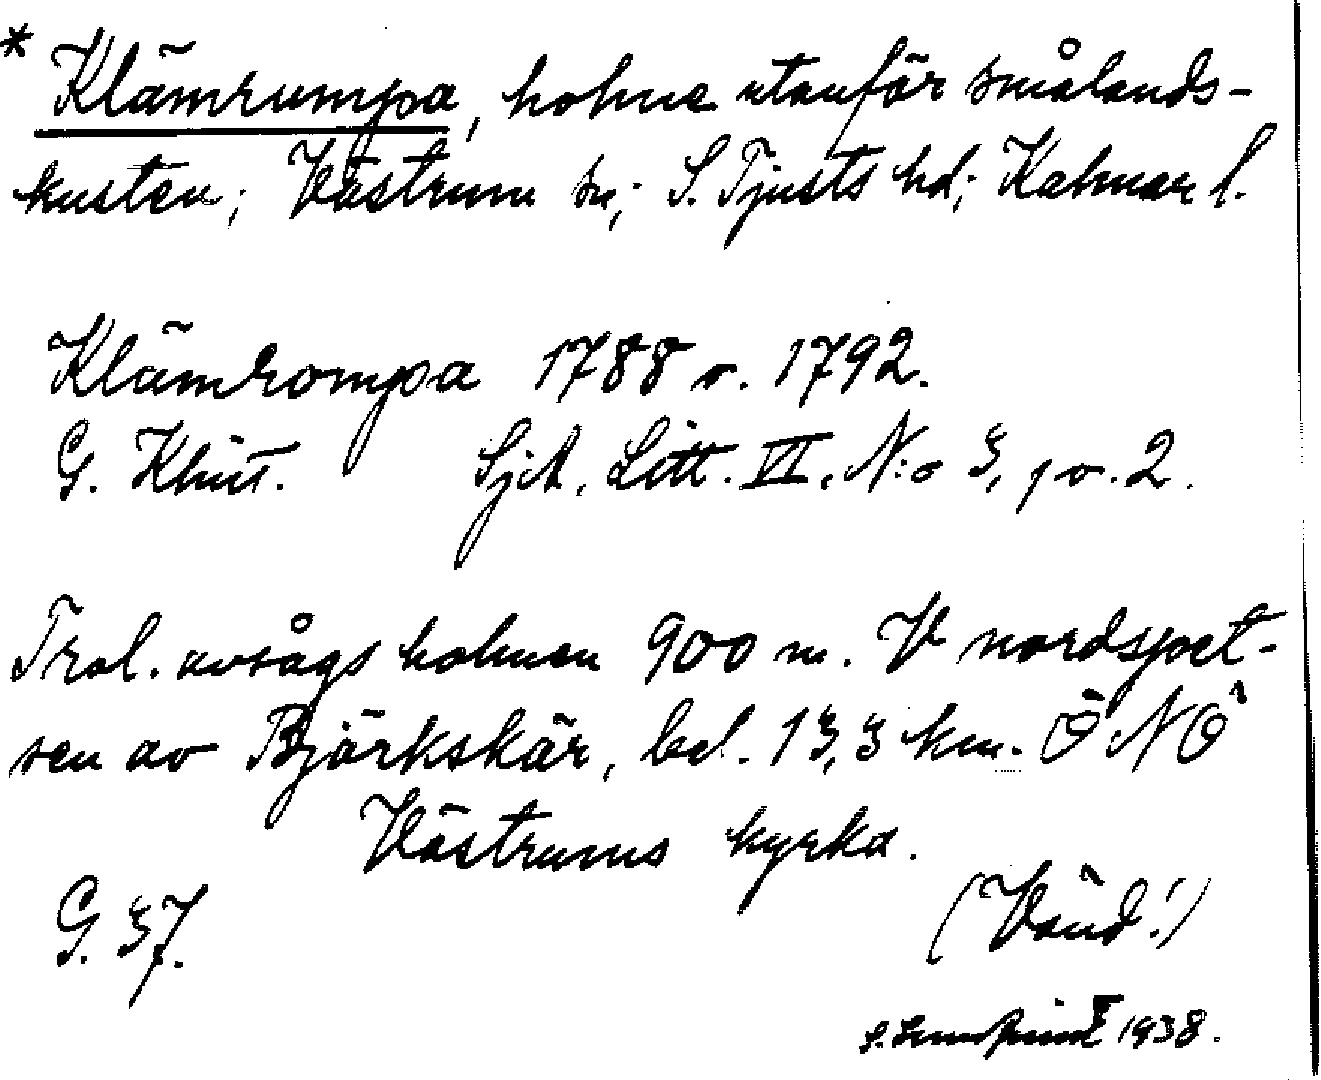 * Klämrumpa, holme utanför smålands-
kusten; Västrum sn; S. Tjusts hd; Kalmar l.
Klämrompa 1788 o. 1792.
G. Klint. SjA, Litt. VI, N:o 3, 1 o. 2.
Trol. avsågs holmen 900 m. V nordspet-
sen av Björkskär, bel. 13,3 km. Ö NÖ
Västrums kyrka.
G. 37. (Vänd!)
1938.